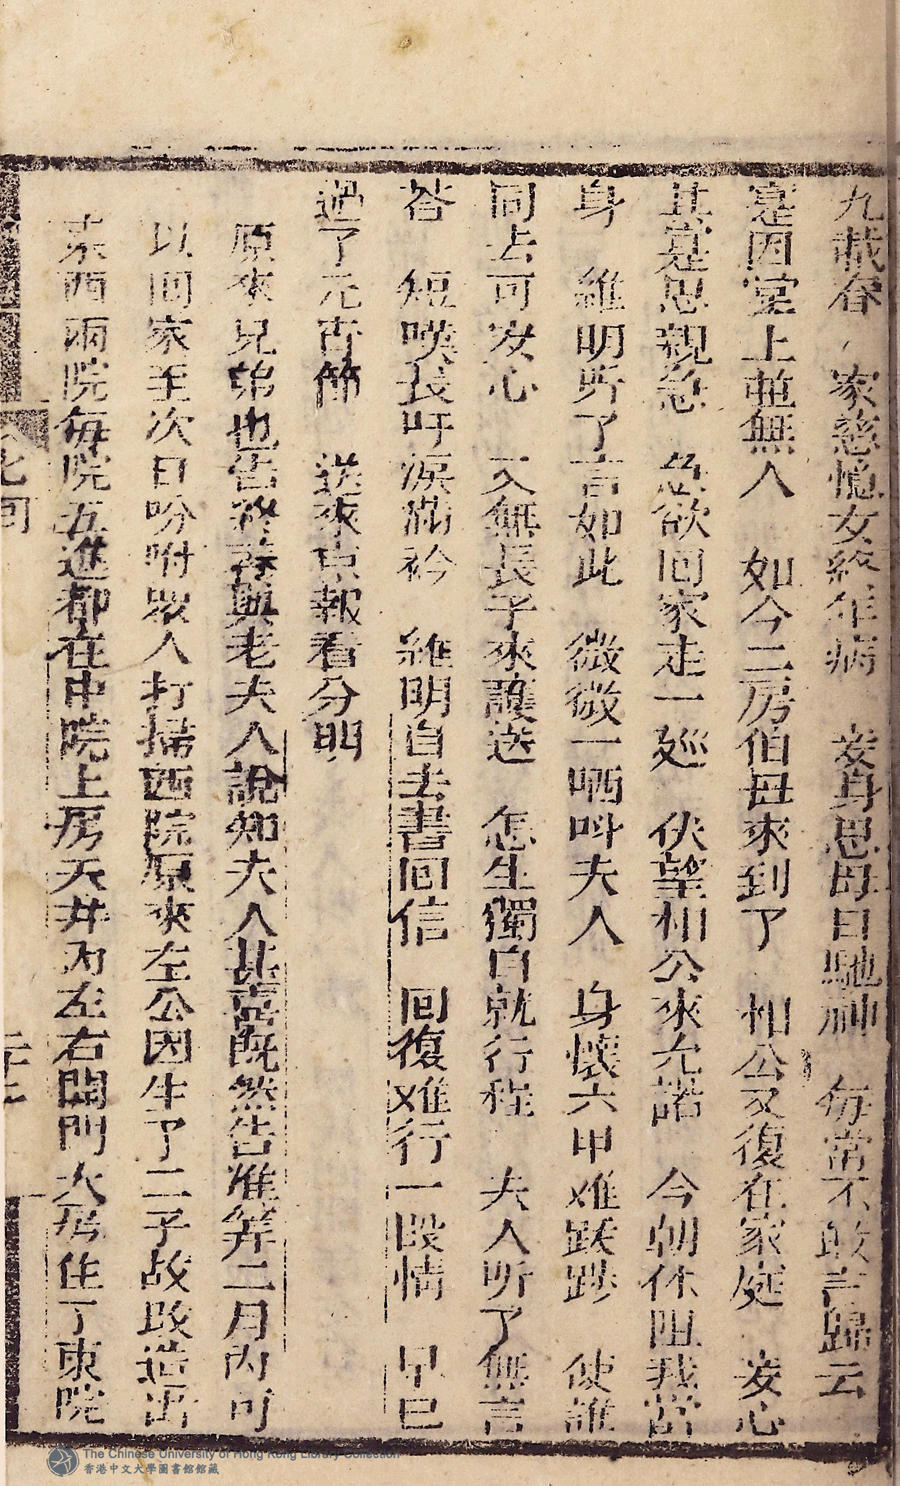 九載春　家慈憶女終年病　妾身思母日馳神　每常不敢言歸云
寔因堂上並無人　如今二房伯母來到了　相公又復在家庭　妾心
甚寔思親急　急欲回家走一廵　伏望相公來允諾　今朝休阻我當
身　維明听了言如此　微微一哂呌夫人　身懷六甲难跋踄　使誰
同去可安心　又無長子來護送　怎生獨自就行程　夫人听了無言
荅　短嘆長吁淚滿衿　維明自去書回信　回復难行一段情　早已
過了元宵節　送來京報看分明
原來兄弟也告終養與老夫人說知夫人甚喜既然告准筭二月內可
以回家至次日吩咐眾人打掃西院原來左公因生了二子故改造出
東西兩院每院五進都在中院上房天井內左右開門大房住了東院
七回
The Chinese University of Hong Kong Library Collection
香港中文大學圖書館館藏